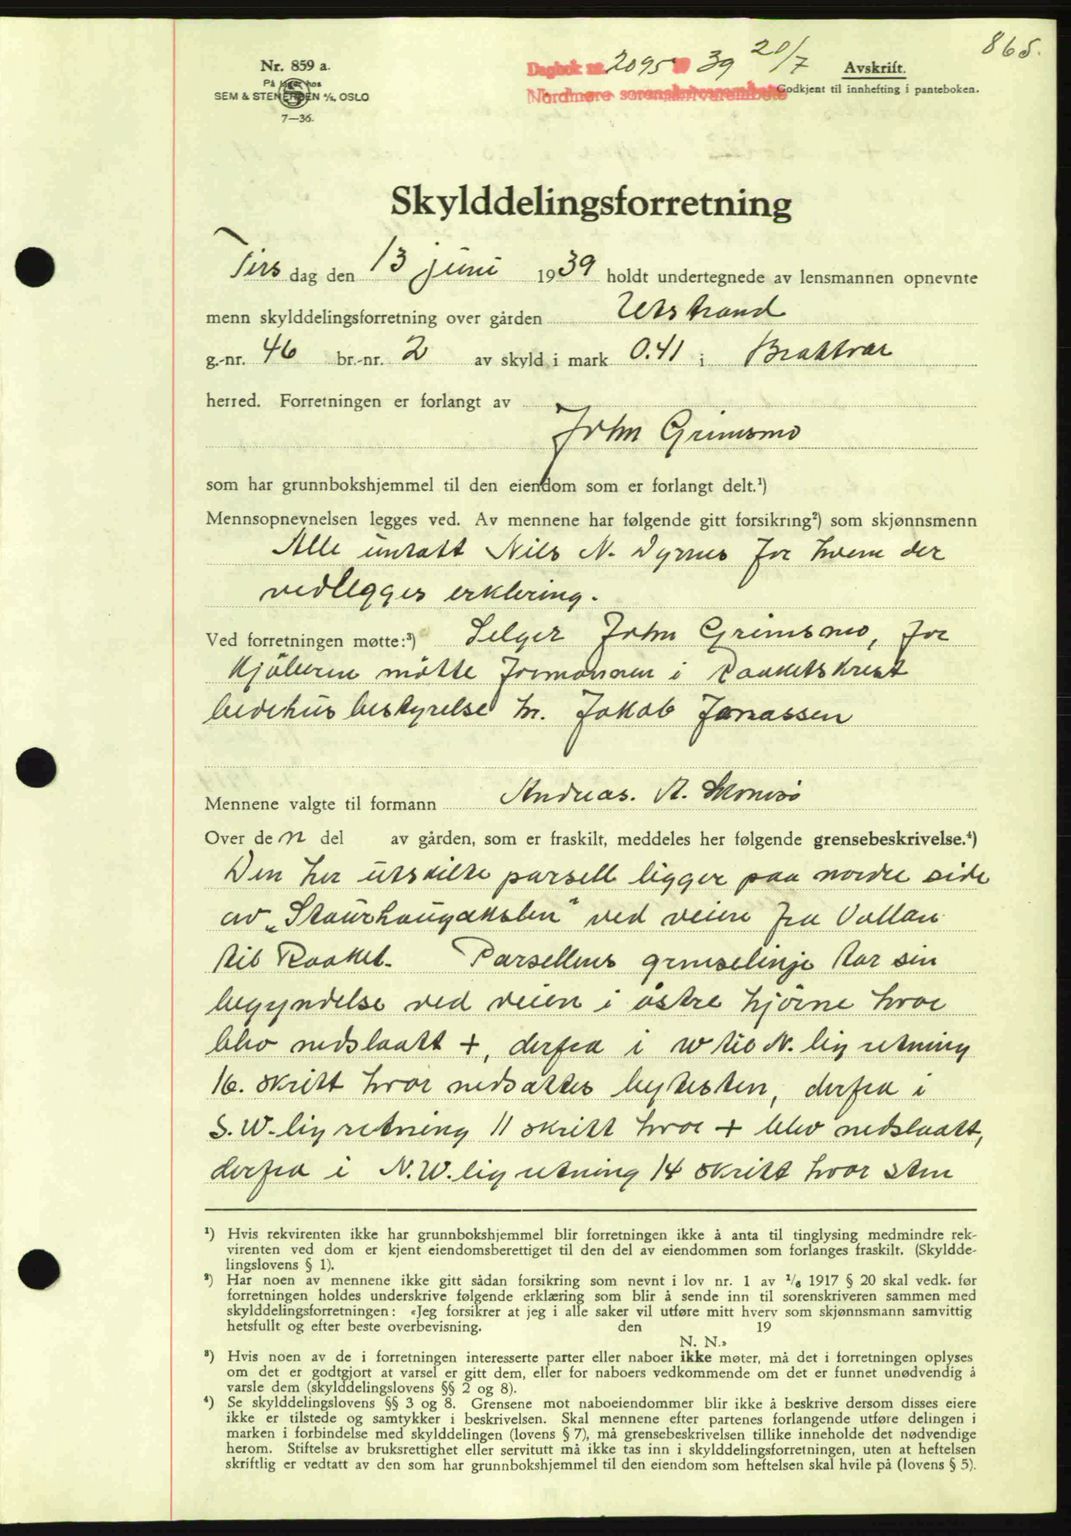 865.
Nr. 859 a.
På lager hos
SEM & STENERSEN A/S, OSLO
7—36.
Dagbok nr. 2095 19 39 20/7
Nordmøre sorenskriverembete
Avskrift.
Godkjent til innhefting i panteboken.
Skylddelingsforretning
Tirs dag den 13 juni 1939 holdt undertegnede av lensmannen opnevnte
menn skylddelingsforretning over gården Utstrand
g.-nr. 46 br.-nr. 2 av skyld i mark 0.41 i Brattvær
herred. Forretningen er forlangt av
John Grimsmo
som har grunnbokshjemmel til den eiendom som er forlangt delt.¹)
Mennsopnevnelsen legges ved. Av mennene har følgende gitt forsikring²) som skjønnsmenn
Alle untatt Nils N. Dyrnes for hvem der
vedlegges erklering.
Ved forretningen møtte:³) Selger John Grimsmo, for
Kjøberen møtte formannen i Raaketskrest
bedehusbestyrelse hr. Jakob Jonassen
Mennene valgte til formann Andreas. A. Skomsø
Over de n del av gården, som er fraskilt, meddeles her følgende grensebeskrivelse.⁴)
Den her utskilte parsell ligger paa nordre side
av „Staurhaugakslen" ved veien fra Vullan
til Raaket. Parsellens grenselinje tar sin
begyndelse ved veien i østre hjørne hvor
blev nedslaatt +, derfra i W til N. lig retning
16. skritt hvor nedsattes bytesten, derfra i
S.W.lig retning 11 skritt hvor + blev nedslaatt,
derfra i N.W.lig retning 14 skritt hvor sten
¹) Hvis rekvirenten ikke har grunnbokshjemmel blir forretningen ikke å anta til tinglysing medmindre rek-
virenten ved dom er kjent eiendomsberettiget til den del av eiendommen som forlanges fraskilt. (Skyldde-
lingslovens § 1).
²) Har noen av mennene ikke gitt sådan forsikring som nevnt i lov nr. 1 av ¹/₆ 1917 § 20 skal vedk. før
forretningen holdes underskrive følgende erklæring som blir å sende inn til sorenskriveren sammen med
skylddelingsforretningen: «Jeg forsikrer at jeg i alle saker vil utføre mitt hverv som skjønnsmann samvittig
hetsfullt og efter beste overbevisning. den 19
N. N.»
³) Hvis noen av de i forretningen interesserte parter eller naboer ikke møter, må det i forretningen oplyses
om det er godtgjort at varsel er gitt dem, eller for naboers vedkommende om det er funnet unødvendig å
varsle dem (skylddelingslovens §§ 2 og 8).
⁴) Se skylddelingslovens §§ 3 og 8. Grensene mot naboeiendommer blir ikke å beskrive dersom disses eiere
ikke er tilstede og samtykker i beskrivelsen. Skal mennene efter partenes forlangende utføre delingen i
marken i forbindelse med skylddelingen (lovens § 7), må grensebeskrivelsen tillike inneholde det nødvendige
herom. Stiftelse av bruksrettighet eller servitutt må ikke tas inn i skylddelingsforretningen, uten at heftelsen
skriftlig er vedtatt av den som har grunnbokshjemmel til den eiendom som heftelsen skal hvile på (lovens § 5).